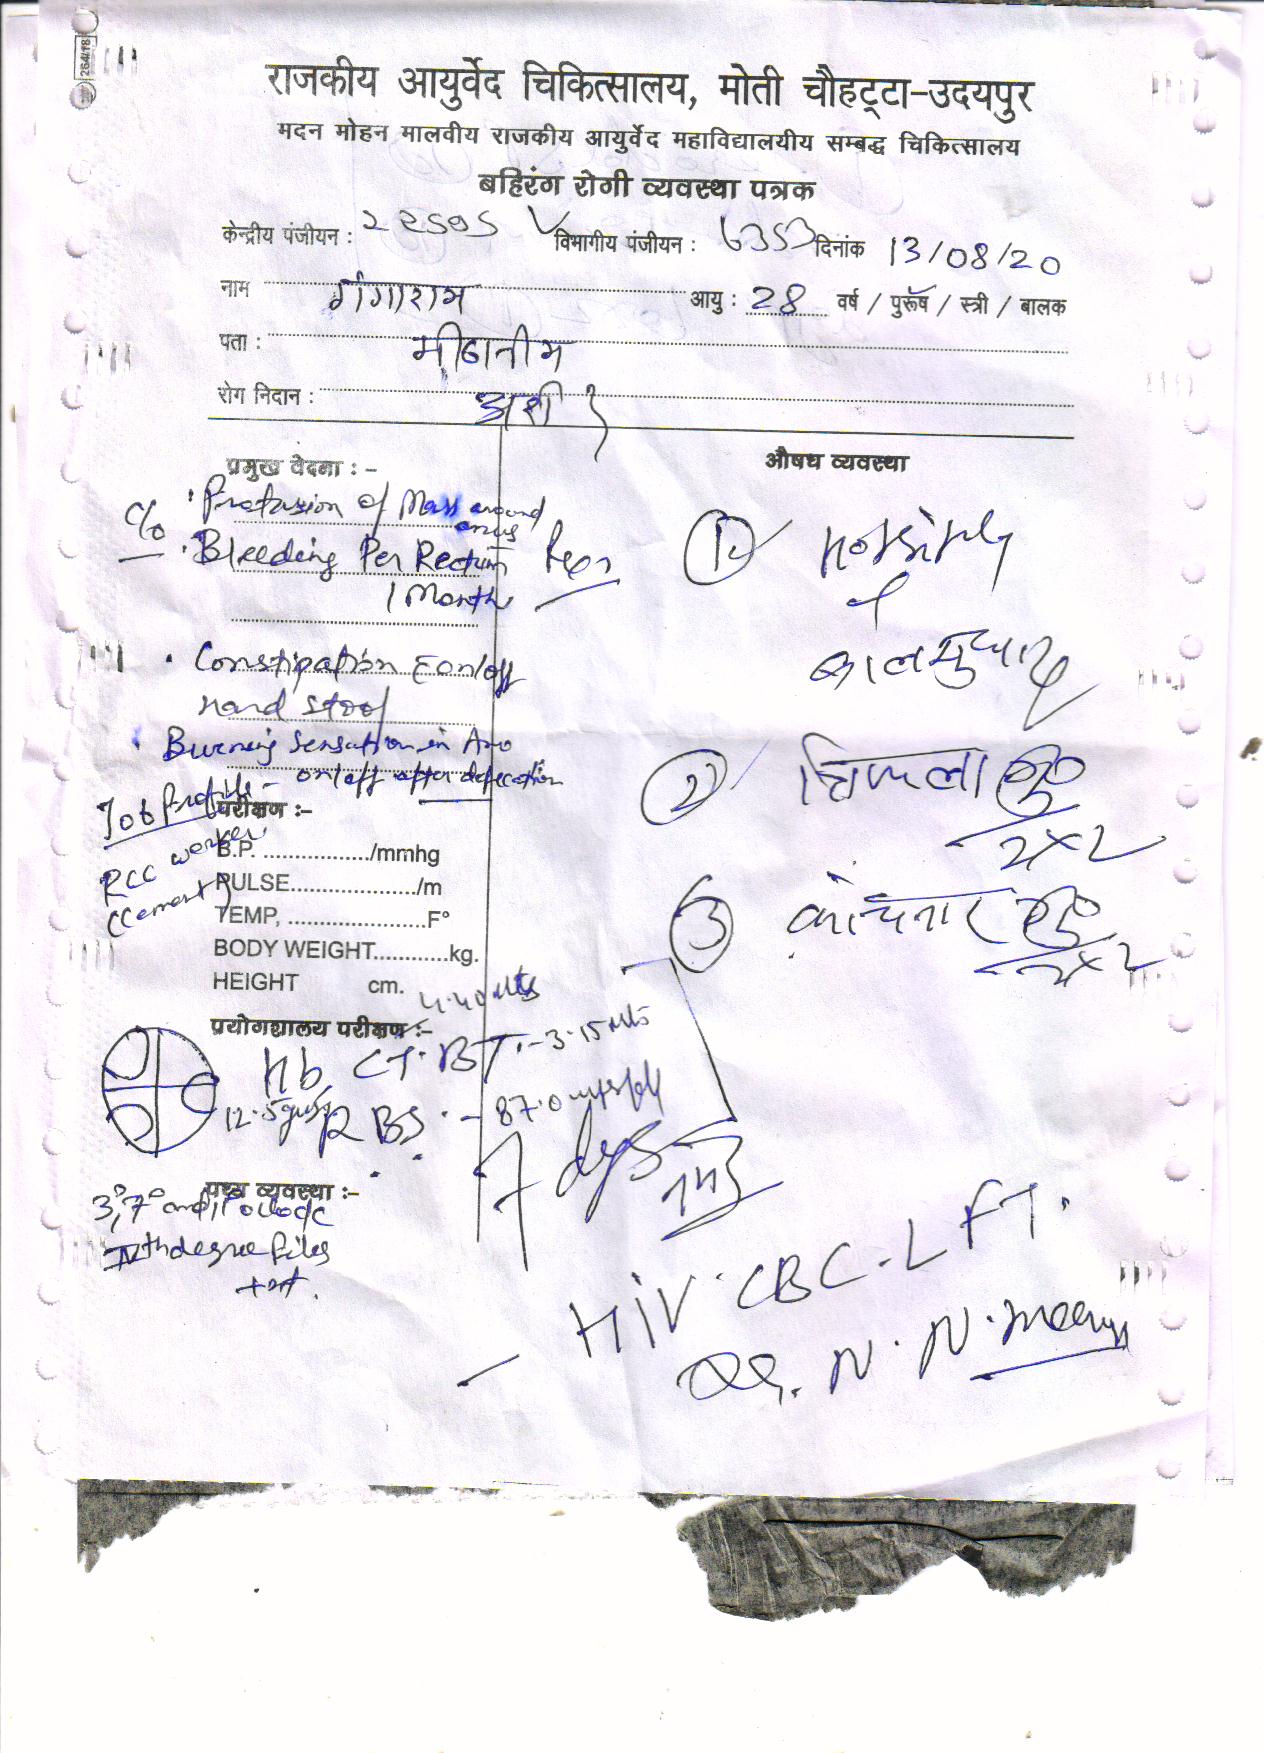 264/18
राजकीय आयुर्वेद चिकित्सालय, मोती चौहट्टा-उदयपुर
मदन मोहन मालवीय राजकीय आयुर्वेद महाविद्यालयीय सम्बद्ध चिकित्सालय
बहिरंग रोगी व्यवस्था पत्रक
केन्द्रीय पंजीयन : विभागीय पंजीयन : दिनांक 13/08/20
नाम गंगाराम आयु : 28 वर्ष / पुरूष / स्त्री / बालक
पता :
रोग निदान : अर्श
प्रमुख वेदना :- औषध व्यवस्था
c/o · Protrusion of Mass around anus
· Bleeding Per Rectum
1 Month
· Constipation on/off
Hard stool
· Burning Sensation in Ano
on/off after defecation
Job Profile -
RCC worker
(Cement)
परीक्षण :-
B.P. ................../mmhg
PULSE..................../m
TEMP, ......................F°
BODY WEIGHT............kg.
HEIGHT cm.
प्रयोगशालय परीक्षण :-
4.40 mts
Hb, CT. BT. - 3.15 mts
12.5 gm% RBS. - 87.0
पथ्य व्यवस्था :-
3°, 7° and 11° o'clock
IVth degree Piles
1
2 त्रिफला गुग्गु
2x2
3 कांचनार गुग्गु
2x2
7 days
HIV. CBC. LFT.
Dr. N. N. Meena